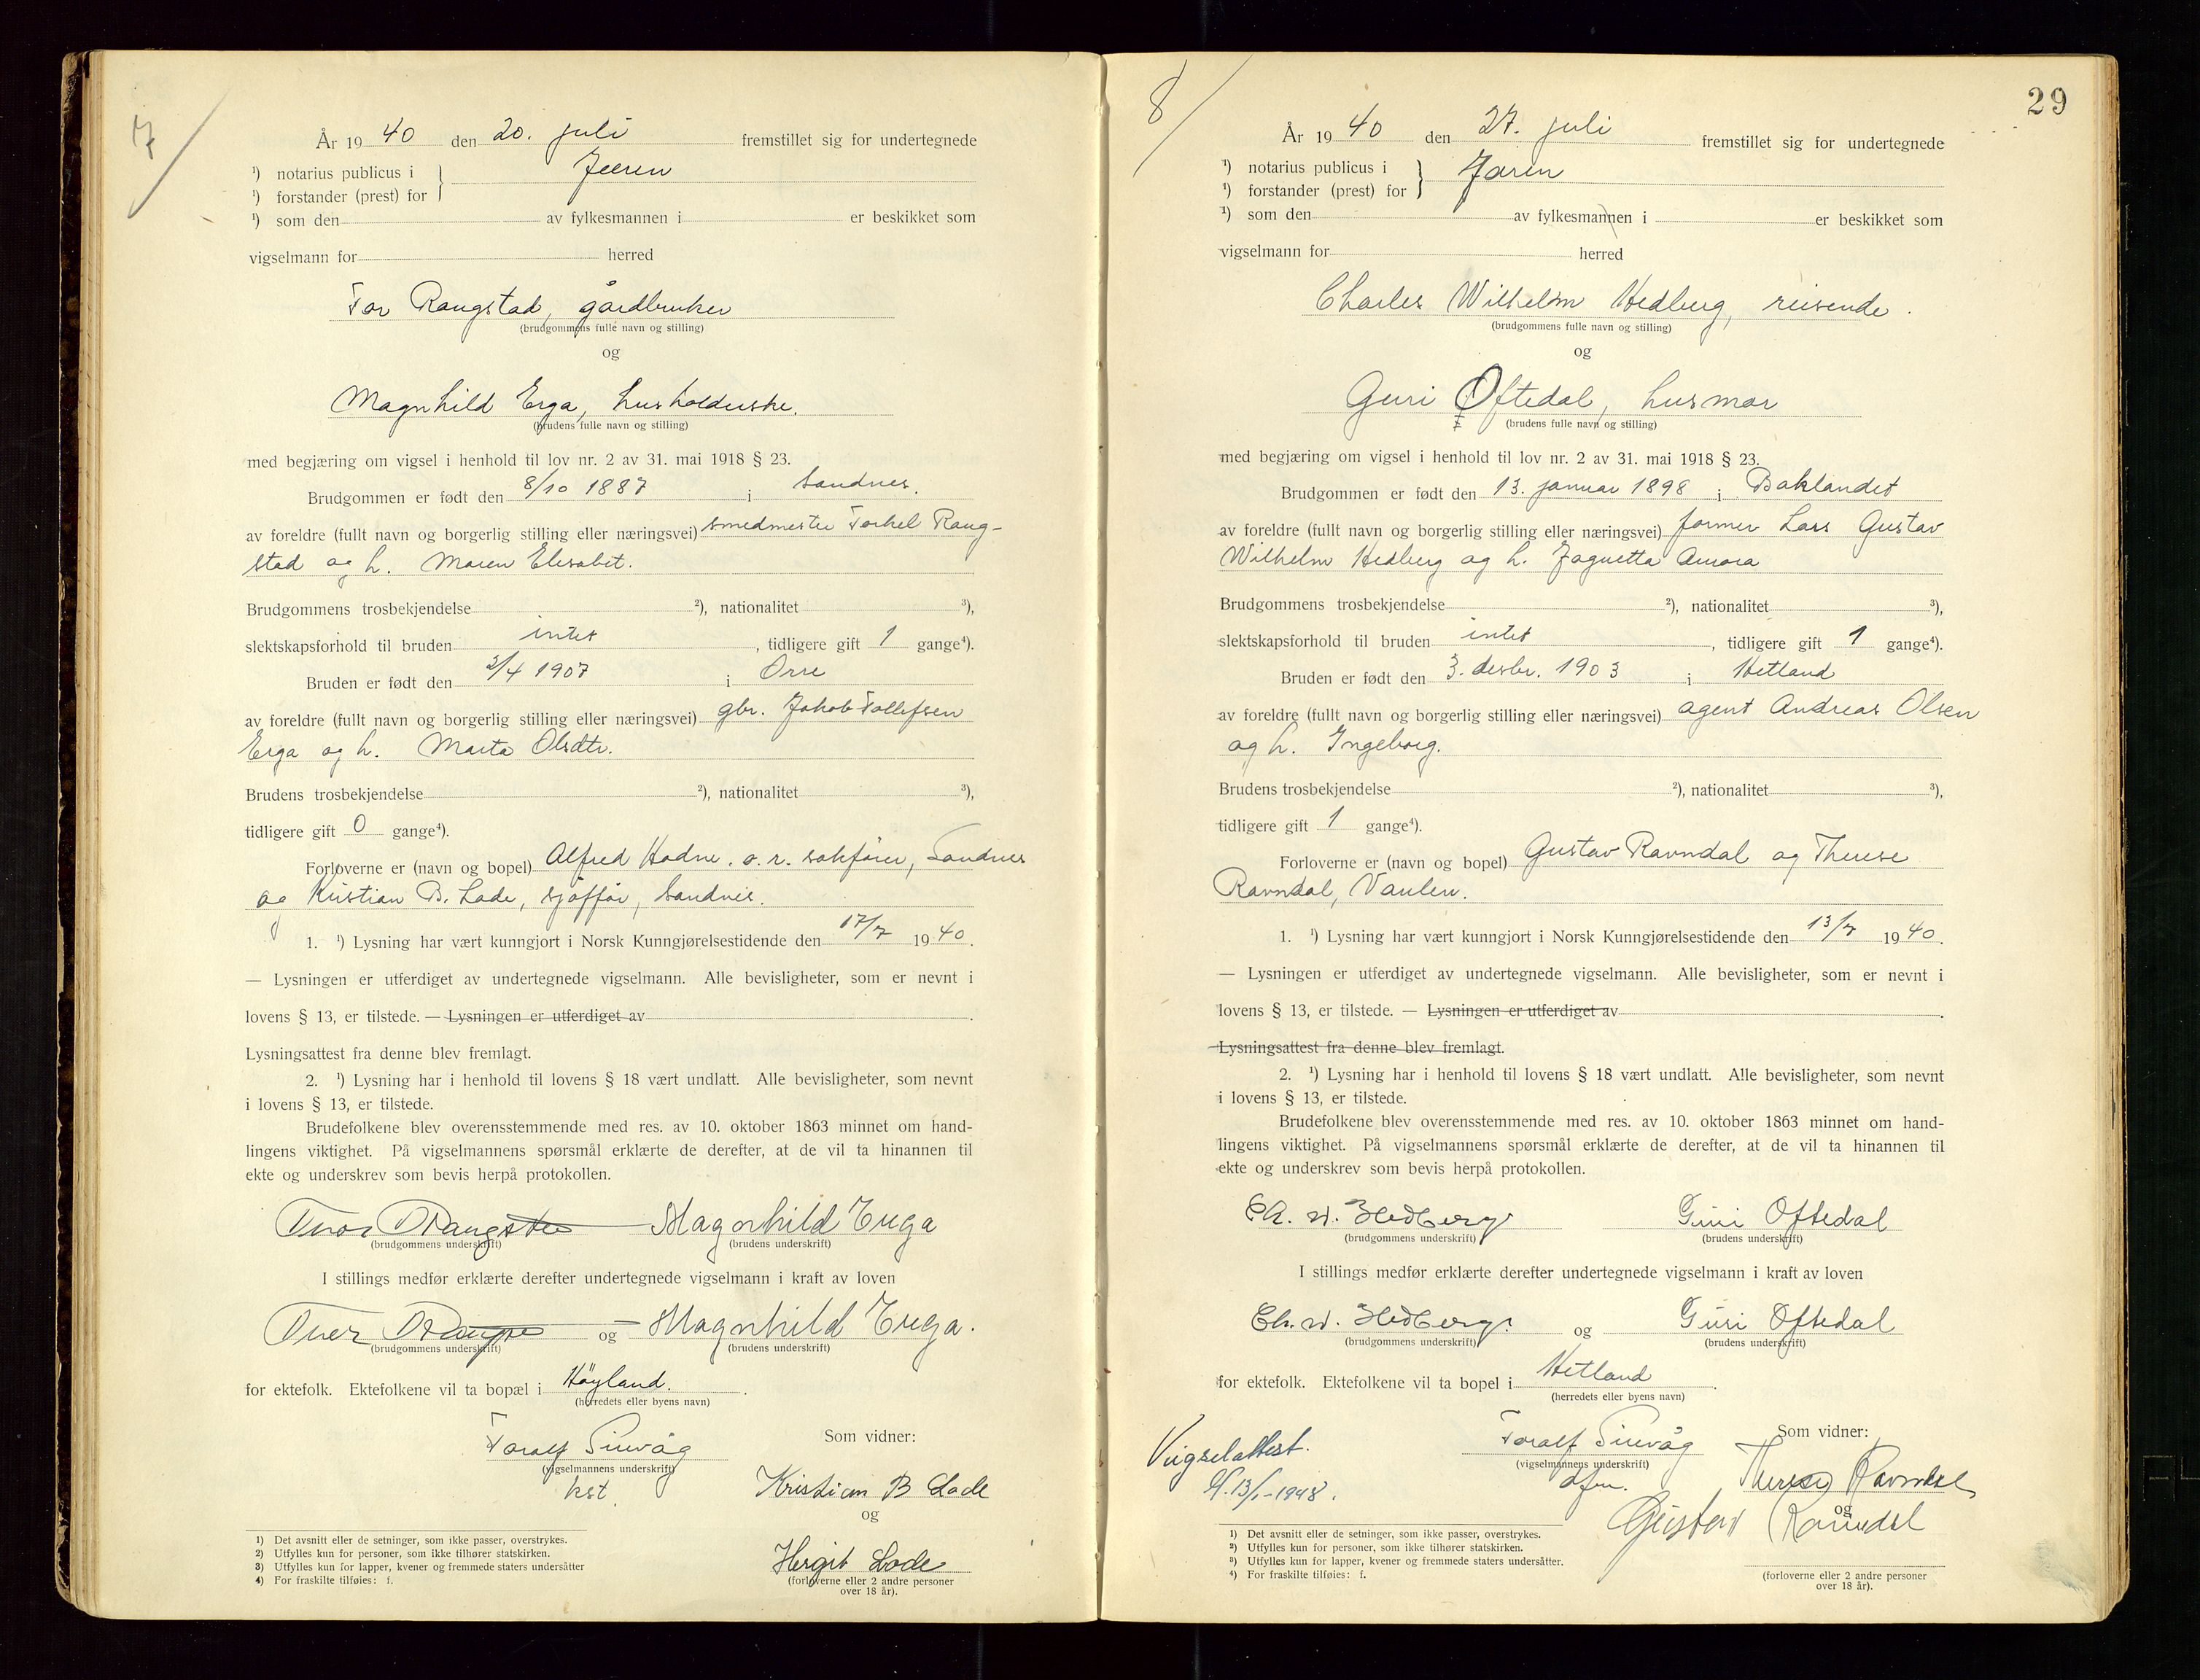 7
År 1940 den 20. juli fremstillet sig for undertegnede
¹) notarius publicus i } Jæren
¹) forstander (prest) for
¹) som den av fylkesmannen i er beskikket som
vigselmann for herred
Tor Raugstad, gårdbruker
(brudgommens fulle navn og stilling)
og
Magnhild Erga, husholderske.
(brudens fulle navn og stilling)
med begjæring om vigsel i henhold til lov nr. 2 av 31. mai 1918 § 23.
Brudgommen er født den 8/10 1887 i Sandnes.
av foreldre (fullt navn og borgerlig stilling eller næringsvei) smedmester Torkel Raug-
stad og h. Maren Elisabet.
Brudgommens trosbekjendelse ²), nationalitet ³),
slektskapsforhold til bruden intet, tidligere gift 1 gange⁴).
Bruden er født den 2/4 1907 i Orre
av foreldre (fullt navn og borgerlig stilling eller næringsvei) gbr. Jakob Tollefsen
Erga og h. Marta Olsdtr.
Brudens trosbekjendelse ²), nationalitet ³),
tidligere gift 0 gange⁴).
Forloverne er (navn og bopel) Alfred Hodne, o. r. sakfører, Sandnes
og Kristian B. Lode, sjåffør, Sandnes.
1. ¹) Lysning har vært kunngjort i Norsk Kunngjørelsestidende den 17/7 1940.
— Lysningen er utferdiget av undertegnede vigselmann. Alle bevisligheter, som er nevnt i
lovens § 13, er tilstede. — Lysningen er utferdiget av .
Lysningsattest fra denne blev fremlagt.
2. ¹) Lysning har i henhold til lovens § 18 vært undlatt. Alle bevisligheter, som nevnt
i lovens § 13, er tilstede.
Brudefolkene blev overensstemmende med res. av 10. oktober 1863 minnet om hand-
lingens viktighet. På vigselmannens spørsmål erklærte de derefter, at de vil ta hinannen til
ekte og underskrev som bevis herpå protokollen.
Magnhild Erga
(brudgommens underskrift) (brudens underskrift)
I stillings medfør erklærte derefter undertegnede vigselmann i kraft av loven
og Magnhild Erga.
(brudgommens underskrift) (brudens underskrift)
for ektefolk. Ektefolkene vil ta bopæl i Höyland.
(herredets eller byens navn)
Toralf Sirevåg
(vigselmannens underskrift)
kst.
Som vidner:
Kristian B Lode
og
Hergit Lode
(forloverne eller 2 andre personer
over 18 år).
1) Det avsnitt eller de setninger, som ikke passer, overstrykes.
2) Utfylles kun for personer, som ikke tilhører statskirken.
3) Utfylles kun for lapper, kvener og fremmede staters undersåtter
4) For fraskilte tilføies: f.
29
8
År 1940 den 27. juli fremstillet sig for undertegnede
¹) notarius publicus i } Jæren
¹) forstander (prest) for
¹) som den av fylkesmannen i er beskikket som
vigselmann for herred
Charles Wilhelm Hedberg, reisende.
(brudgommens fulle navn og stilling)
og
Guri Oftedal, husmor
(brudens fulle navn og stilling)
med begjæring om vigsel i henhold til lov nr. 2 av 31. mai 1918 § 23.
Brudgommen er født den 13. januar 1898 i Baklandet
av foreldre (fullt navn og borgerlig stilling eller næringsvei) former Lars Gustav
Wilhelm Hedberg og h. Jaguetta Aurora
Brudgommens trosbekjendelse ²), nationalitet ³),
slektskapsforhold til bruden intet, tidligere gift 1 gange⁴).
Bruden er født den 3. desbr. 1903 i Hetland
av foreldre (fullt navn og borgerlig stilling eller næringsvei) agent Andreas Olsen
og h. Ingeborg.
Brudens trosbekjendelse ²), nationalitet ³),
tidligere gift 1 gange⁴).
Forloverne er (navn og bopel) Gustav Ravndal og Therese
Ravndal, Vaulen.
1. ¹) Lysning har vært kunngjort i Norsk Kunngjørelsestidende den 13/7 1940.
— Lysningen er utferdiget av undertegnede vigselmann. Alle bevisligheter, som er nevnt i
lovens § 13, er tilstede. — Lysningen er utferdiget av .
Lysningsattest fra denne blev fremlagt.
2. ¹) Lysning har i henhold til lovens § 18 vært undlatt. Alle bevisligheter, som nevnt
i lovens § 13, er tilstede.
Brudefolkene blev overensstemmende med res. av 10. oktober 1863 minnet om hand-
lingens viktighet. På vigselmannens spørsmål erklærte de derefter, at de vil ta hinannen til
ekte og underskrev som bevis herpå protokollen.
Ch. W. Hedberg Guri Oftedal
(brudgommens underskrift) (brudens underskrift)
I stillings medfør erklærte derefter undertegnede vigselmann i kraft av loven
Ch. W. Hedberg. og Guri Oftedal
(brudgommens underskrift) (brudens underskrift)
for ektefolk. Ektefolkene vil ta bopel i Hetland.
(herredets eller byens navn)
Vigselattest.
13/1-1948.
Toralf Sirevåg
(vigselmannens underskrift)
Som vidner:
Therese Ravndal
og
Gustav Ravndal
(forloverne eller 2 andre personer
over 18 år).
1) Det avsnitt eller de setninger, som ikke passer, overstrykes.
2) Utfylles kun for personer, som ikke tilhører statskirken.
3) Utfylles kun for lapper, kvener og fremmede staters undersåtter.
4) For fraskilte tilføies: f.